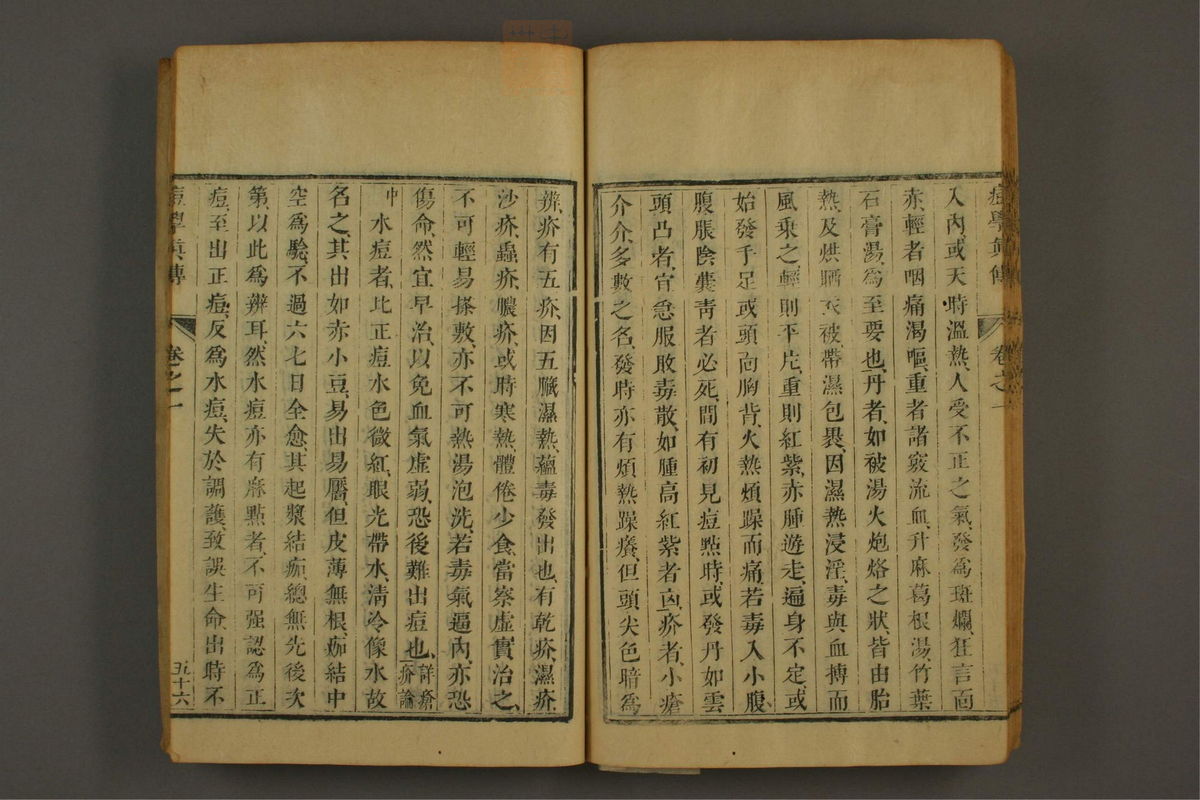 痘學眞傳 卷之一
入內或天時溫熱人受不正之氣發爲斑斕狂言面
赤輕者咽痛渴嘔重者諸竅流血升麻葛根湯竹葉
石膏湯爲至要也丹者如被湯火炮烙之狀皆由胎
熱及烘晒衣被帶濕包裹因濕熱浸淫毒與血搏而
風乘之輕則平片重則紅紫赤腫遊走遍身不定或
始發手足或頭面胸背火熱煩躁而痛若毒入小腹
腹脹陰囊靑者必死間有初見痘點時或發丹如雲
頭凸者宜急服敗毒散如腫高紅紫者凶疥者小瘡
介介多數之名發時亦有煩熱躁癢但頭尖色暗爲
辨疥有五疥因五臟濕熱蘊毒發出也有乾疥濕疥
沙疥蟲疥膿疥或時寒熱體倦少食當察虛實治之
不可輕易搽敷亦不可熱湯泡洗若毒氣逼內亦恐
傷命然宜早治以免血氣虛弱恐後難出痘也詳瘡疥論
中水痘者比正痘水色微紅眼光帶水淸冷像水故
名之其出如赤小豆易出易靨但皮薄無根痂結中
空爲驗不過六七日全愈其起漿結痂總無先後次
第以此爲辨耳然水痘亦有麻點者不可强認爲正
痘至出正痘反爲水痘失於調護致誤生命出時不
痘學眞傳 卷之一 五十六